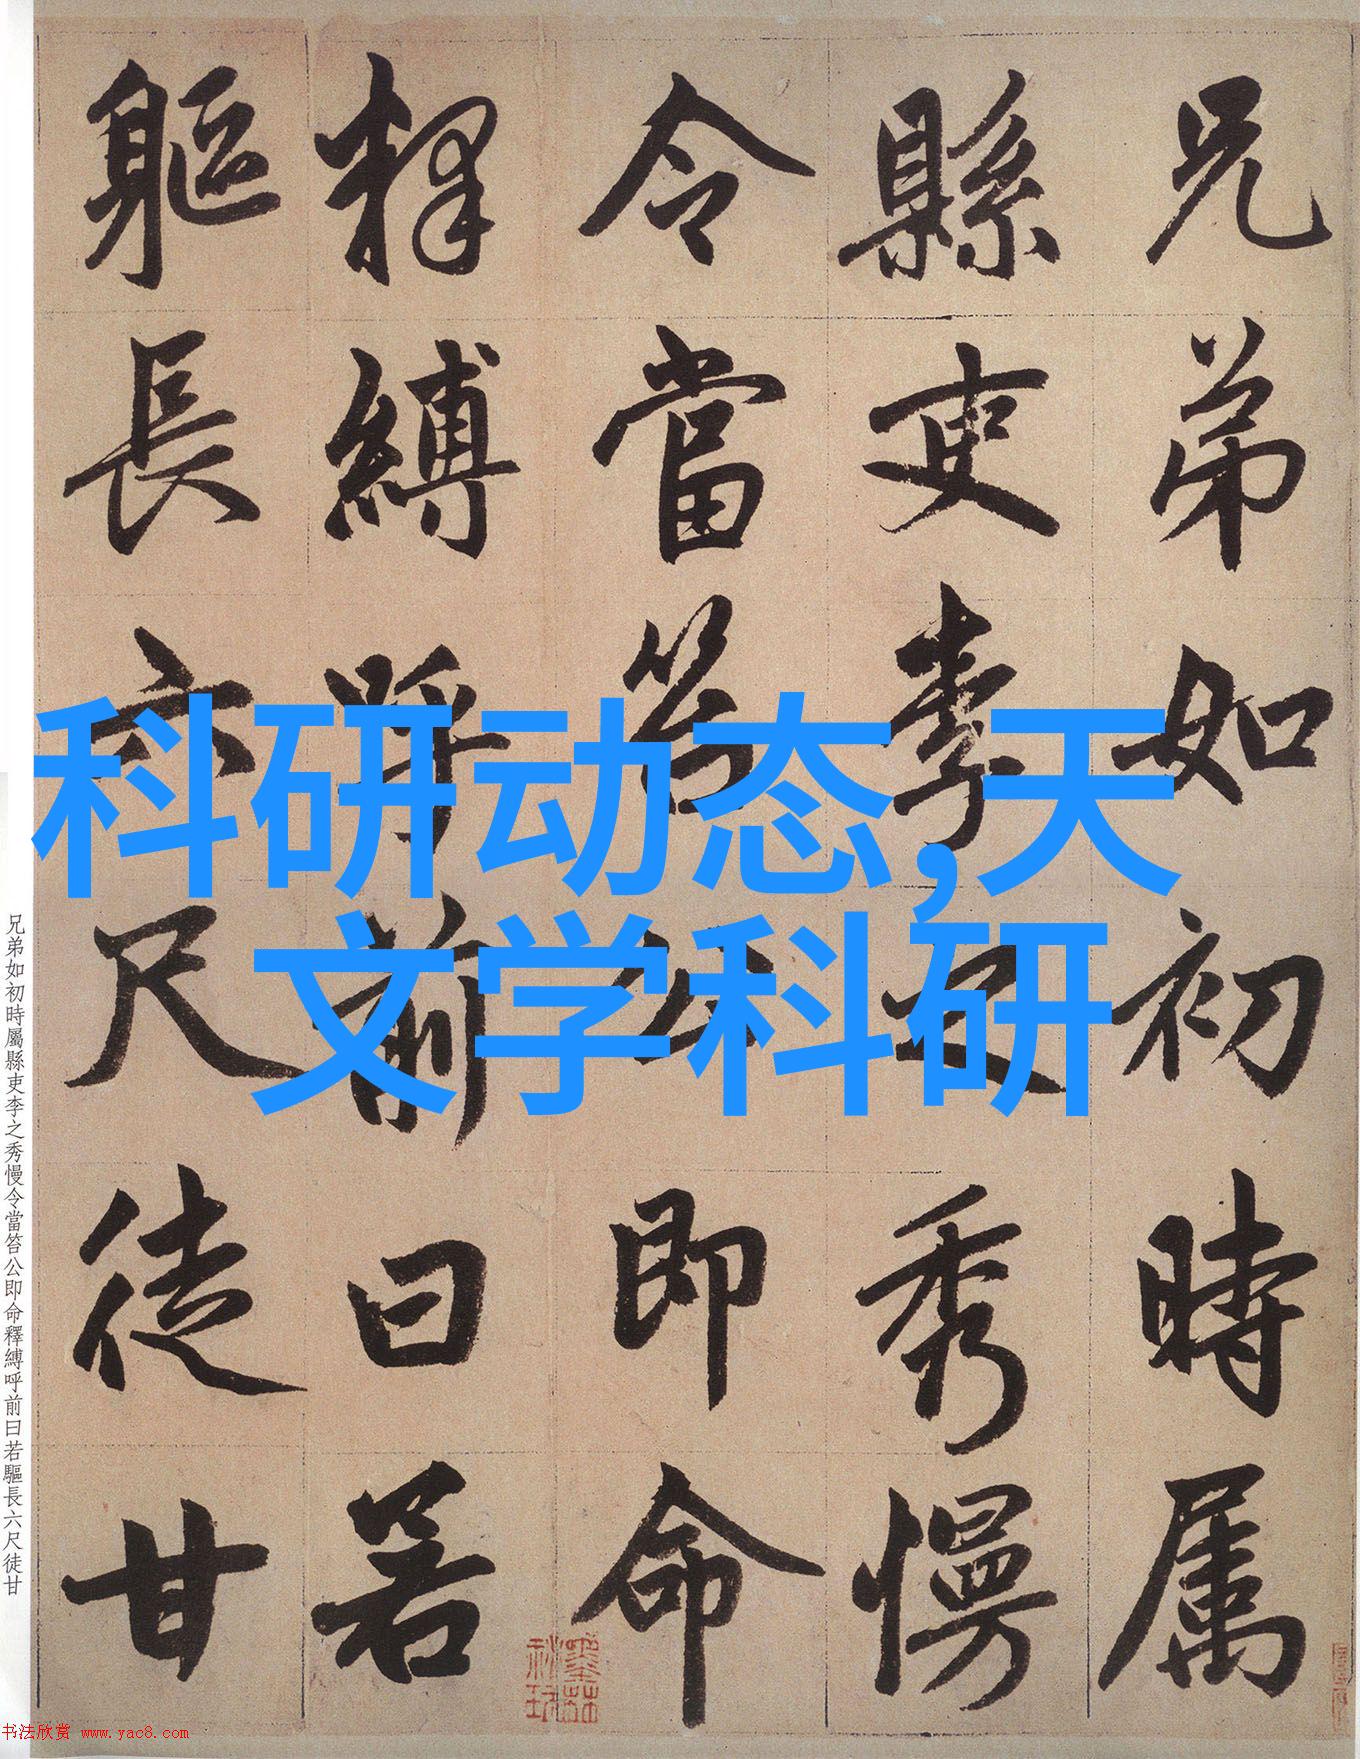 兄弟如初時屬
縣吏李之秀慢
令當笞公即命
釋縛呼前曰若
軀長六尺徒甘
科研动态,天
文学科研
兄弟如初時屬縣吏李之秀慢令當笞公即命釋縛呼前曰若驅長六尺徒甘
书法欣赏 www.yac8.com